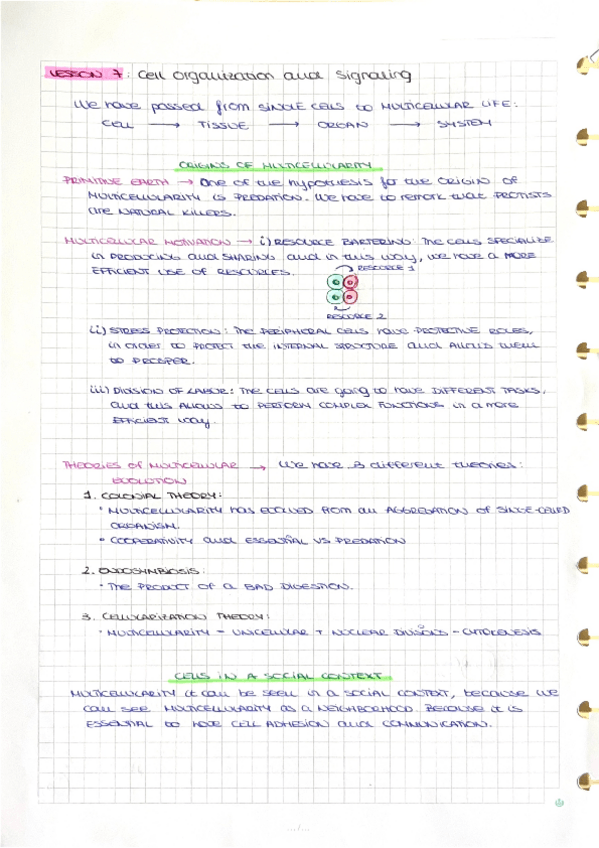 LESSON 7: Cell organization and signaling
We have passed from SINGLE CELLS to MULTICELLULAR LIFE:
CELL → TISSUE → ORGAN → SYSTEM
ORIGINS OF MULTICELLULARITY
PRIMITIVE EARTH → One of the hypothesis for the ORIGIN OF
MULTICELLULARITY IS PREDATION. We have to remark that PROTISTS
are NATURAL KILLERS.
MULTICELLULAR MOTIVATION → i) RESOURCE BARTERING: The CELLS SPECIALIZE
in PRODUCING and SHARING and in this way, we have a MORE
EFFICIENT USE OF RESOURCES.
RESOURCE 1
RESOURCE 2
ii) STRESS PROTECTION: The PERIPHERAL CELLS have PROTECTIVE ROLES,
in order to PROTECT the INTERNAL STRUCTURE and ALLOWS them
to PROSPER.
iii) DIVISION OF LABOR: The CELLS are going to have DIFFERENT TASKS,
and this ALLOWS to PERFORM COMPLEX FUNCTIONS in a more
EFFICIENT way.
THEORIES OF MULTICELLULAR → We have 3 different theories:
EVOLUTION
1. COLONIAL THEORY:
• MULTICELLULARITY HAS EVOLVED FROM an AGGREGATION OF SINGE-CELLED
ORGANISM.
• COOPERATIVITY and ESSENTIAL VS PREDATION
2. ENDOSYMBIOSIS:
• The PRODUCT OF a BAD DIGESTION.
3. CELLULARIZATION THEORY:
• MULTICELLULARITY = UNICELLULAR + NUCLEAR DIVISIONS - CYTOKENESIS
CELLS IN A SOCIAL CONTEXT
MULTICELLULARITY it can be seen in a SOCIAL CONTEXT, because we
can see MULTICELLULARITY as a NEIGHBORHOOD. BECAUSE it is
ESSENTIAL to have CELL ADHESION and COMMUNICATION.
.../...